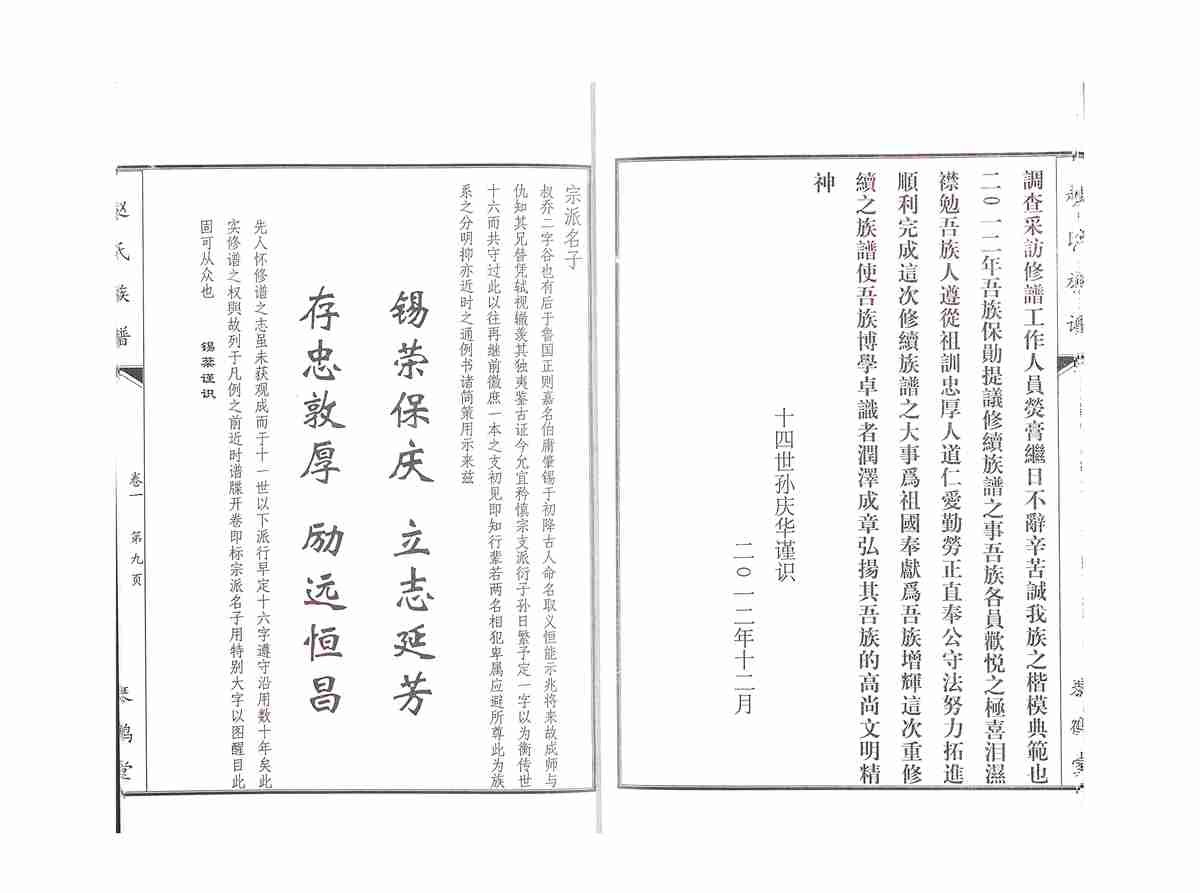 調查采訪修譜工作人員熒膏繼日不辭辛苦誠我族之楷模典範也
二〇一二年吾族保勛提議修續族譜之事吾族各員歡悦之極喜泪濕
襟勉吾族人遵從祖訓忠厚人道仁愛勤勞正直奉公守法努力拓進
順利完成這次修續族譜之大事爲祖國奉獻爲吾族增輝這次重修
續之族譜使吾族博學卓識者潤澤成章弘揚其吾族的高尚文明精
神
十四世孙庆华谨识
二〇一二年十二月
宗派名子
叔乔二字谷也有后于鲁国正则嘉名伯庸肇锡于初降古人命名取义恒能示兆将来故成师与
仇知其兄替凭轼视辙羡其独夷鉴古证今允宜矜慎宗支派衍子孙日繁予定一字以为衡传世
十六而共守过此以往再继前徽庶一本之支初见即知行辈若两名相犯卑属应避所尊此为族
系之分明抑亦近时之通例书诸简策用示来兹
锡荣保庆 立志延芳
存忠敦厚 励远恒昌
先人怀修谱之志虽未获观成而于十一世以下派行早定十六字遵守沿用数十年矣此
实修谱之权舆故列于凡例之前近时谱牒开卷即标宗派名子用特别大字以图醒目此
固可从众也 锡棻谨识
赵氏族谱
卷一 第九页
琴鹤堂